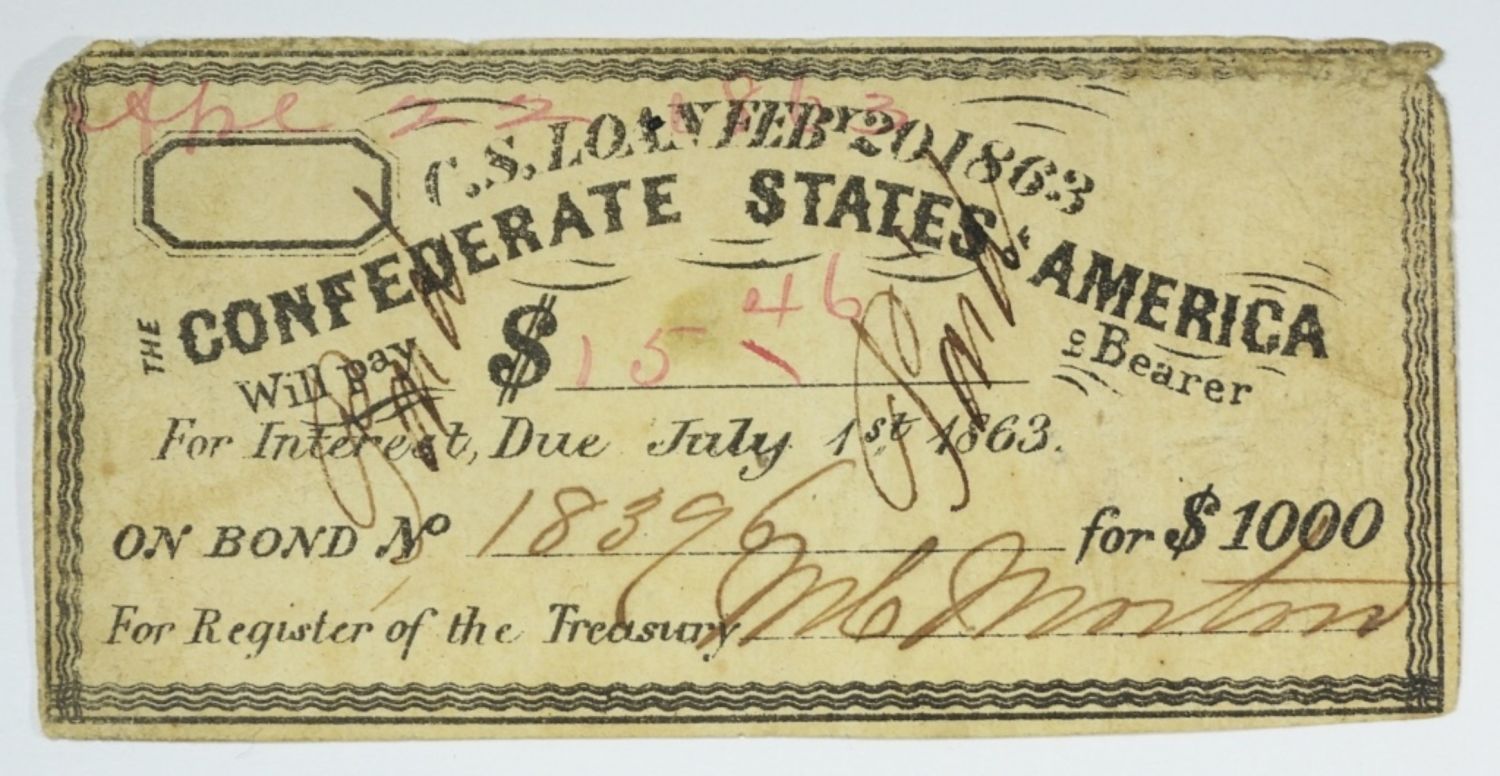 Apl 22 1863
C.S. LOAN FEBY 20 1863
THE CONFEDERATE STATES OF AMERICA
Will pay $ 15 46 to Bearer
For Interest, Due July 1st 1863.
ON BOND No 18396 for $1000
For Register of the Treasury M C Morton